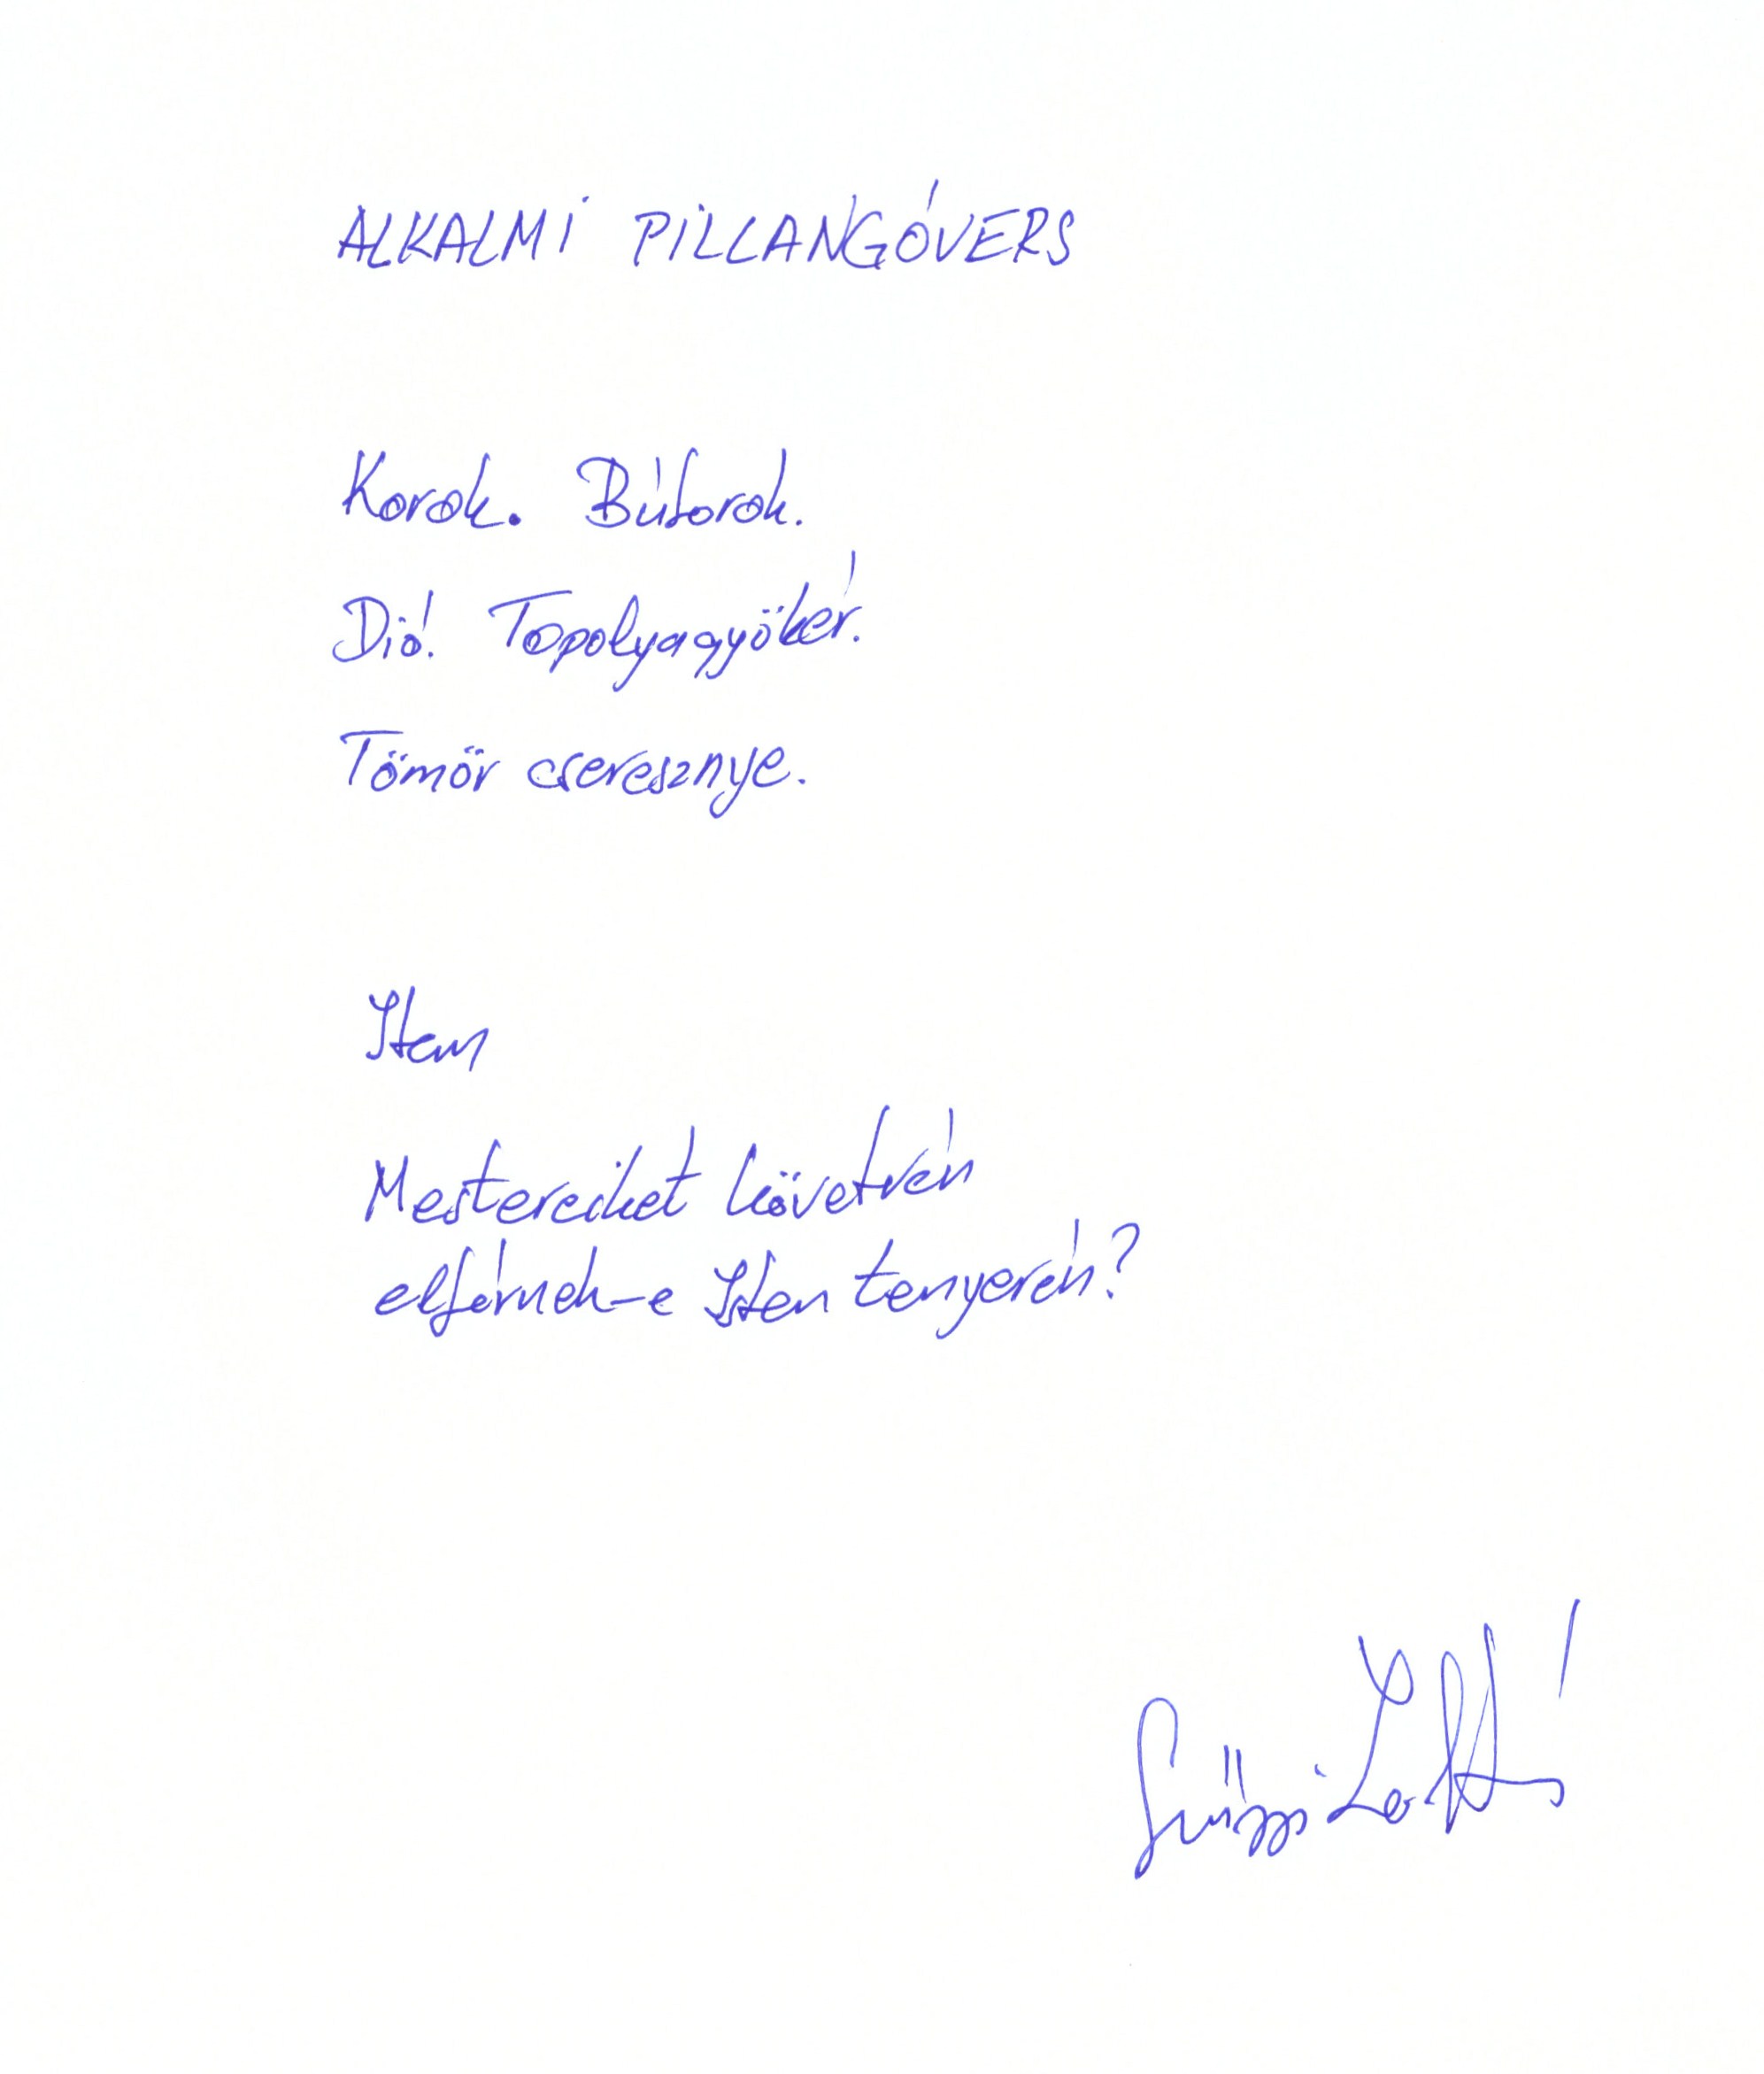 ALKALMI PILLANGÓVERS
Korok. Bútorok.
Dió. Topolyagyökér.
Tömör cseresznye.
Item
Mestereiket követvén
elférnek-e Isten tenyerén?